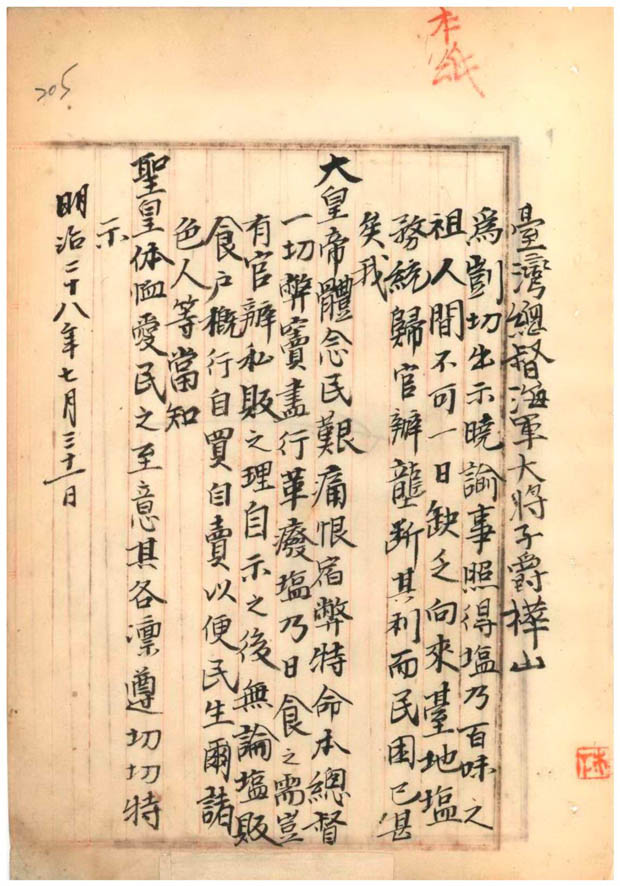 本紙
205
臺灣總督海軍大將子爵樺山
爲剴切出示曉諭事照得塩乃百味之
祖人間不可一日缺乏向來臺地塩
務統歸官辦壟断其利而民困已甚
矣我
大皇帝體念民艱痛恨宿弊特命本總督
一切弊竇盡行革廢塩乃日食之需豈
有官辦私販之理自示之後無論塩販
食戶概行自買自賣以便民生爾諸
色人等當知
聖皇体恤愛民之至意其各凛遵切切特
示
明治二十八年七月三十一日